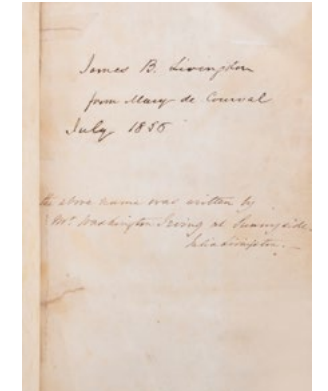 James B. Livingston
from Mary de Courval
July 1856
the above name was written by
Mr Washington Irving at Sunnyside.
Julia Livingston.